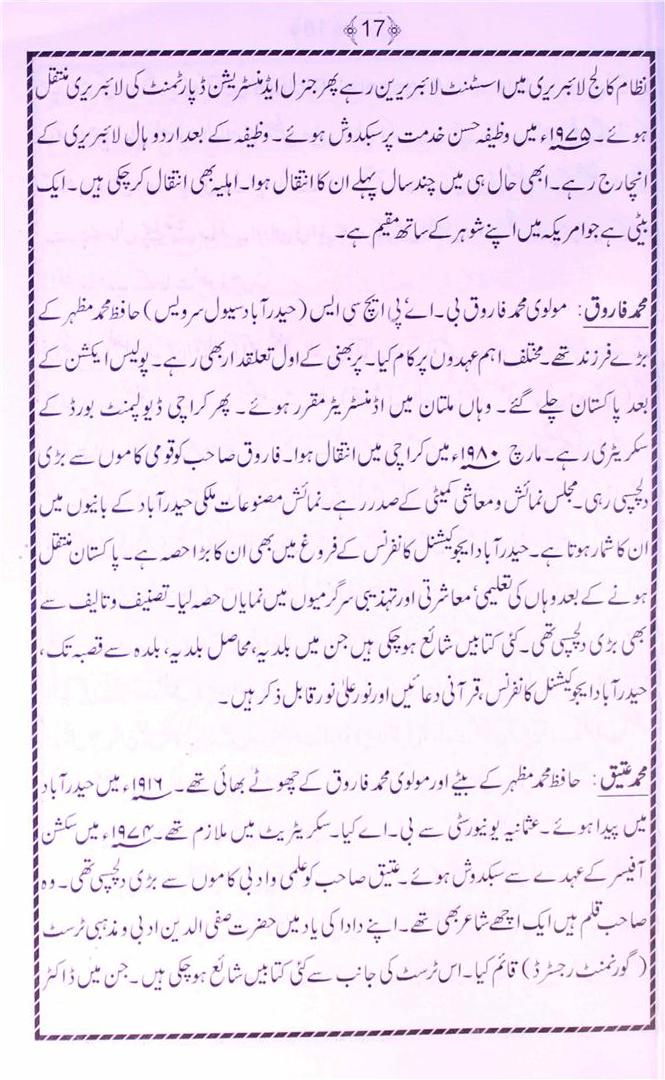 17
نظام کالج لائبریری میں اسسٹنٹ لائبریرین رہے پھر جنرل ایڈمنسٹریشن ڈپارٹمنٹ کی لائبریری منتقل
ہوئے۔ ۱۹۷۵ء میں وظیفہ حسن خدمت پر سبکدوش ہوئے۔ وظیفہ کے بعد اردو ہال لائبریری کے
انچارج رہے۔ ابھی حال ہی میں چند سال پہلے ان کا انتقال ہوا۔ اہلیہ بھی انتقال کر چکی ہیں۔ ایک
بیٹی ہے جو امریکہ میں اپنے شوہر کے ساتھ مقیم ہے۔
محمد فاروق: مولوی محمد فاروق بی۔اے' پی ایچ سی ایس (حیدرآباد سیول سرویس) حافظ محمد مظہر کے
بڑے فرزند تھے۔ مختلف اہم عہدوں پر کام کیا۔ پربھنی کے اول تعلقدار بھی رہے۔ پولیس ایکشن کے
بعد پاکستان چلے گئے۔ وہاں ملتان میں اڈمنسٹریٹر مقرر ہوئے۔ پھر کراچی ڈیولپمنٹ بورڈ کے
سکریٹری رہے۔ مارچ ۱۹۸۰ء میں کراچی میں انتقال ہوا۔ فاروق صاحب کو قومی کاموں سے بڑی
دلچسپی رہی۔ مجلس نمائش و معاشی کمیٹی کے صدر رہے۔ نمائش مصنوعات ملکی حیدرآباد کے بانیوں میں
ان کا شمار ہوتا ہے۔ حیدرآباد ایجوکیشنل کانفرنس کے فروغ میں بھی ان کا بڑا حصہ ہے۔ پاکستان منتقل
ہونے کے بعد وہاں کی تعلیمی' معاشرتی اور تہذیبی سرگرمیوں میں نمایاں حصہ لیا۔ تصنیف و تالیف سے
بھی بڑی دلچسپی تھی۔ کئی کتابیں شائع ہو چکی ہیں جن میں بلدیہ، محاصل بلدیہ، بلدہ سے قصبہ تک،
حیدرآباد ایجوکیشنل کانفرنس، قرآنی دعائیں اور نور علیٰ نور قابل ذکر ہیں۔
محمد عتیق: حافظ محمد مظہر کے بیٹے اور مولوی محمد فاروق کے چھوٹے بھائی تھے۔ ۱۹۱۶ء میں حیدرآباد
میں پیدا ہوئے۔ عثمانیہ یونیورسٹی سے بی۔اے کیا۔ سکریٹریٹ میں ملازم تھے۔ ۱۹۷۴ء میں سکشن
آفیسر کے عہدے سے سبکدوش ہوئے۔ عتیق صاحب کو علمی و ادبی کاموں سے بڑی دلچسپی تھی۔ وہ
صاحب قلم ہیں ایک اچھے شاعر بھی تھے۔ اپنے دادا کی یاد میں حضرت صفی الدین ادبی و مذہبی ٹرسٹ
(گورنمنٹ رجسٹرڈ) قائم کیا۔ اس ٹرسٹ کی جانب سے کئی کتابیں شائع ہو چکی ہیں۔ جن میں ڈاکٹر